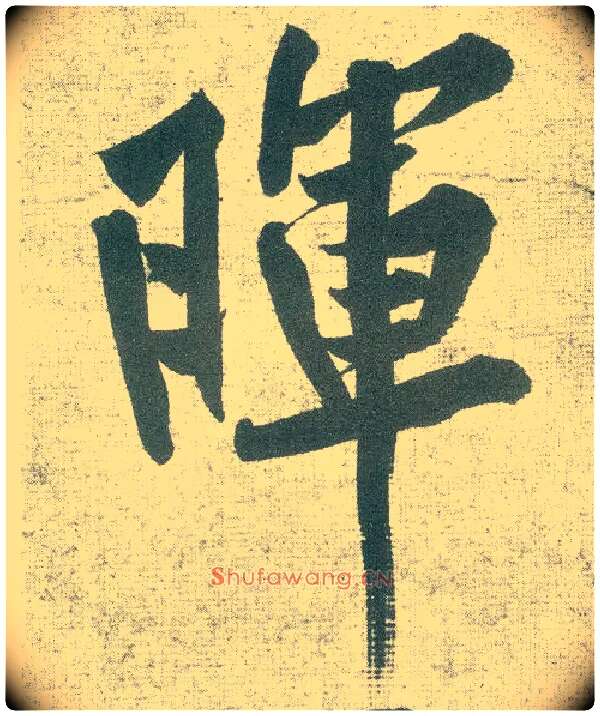 暉
Shufawang.CN